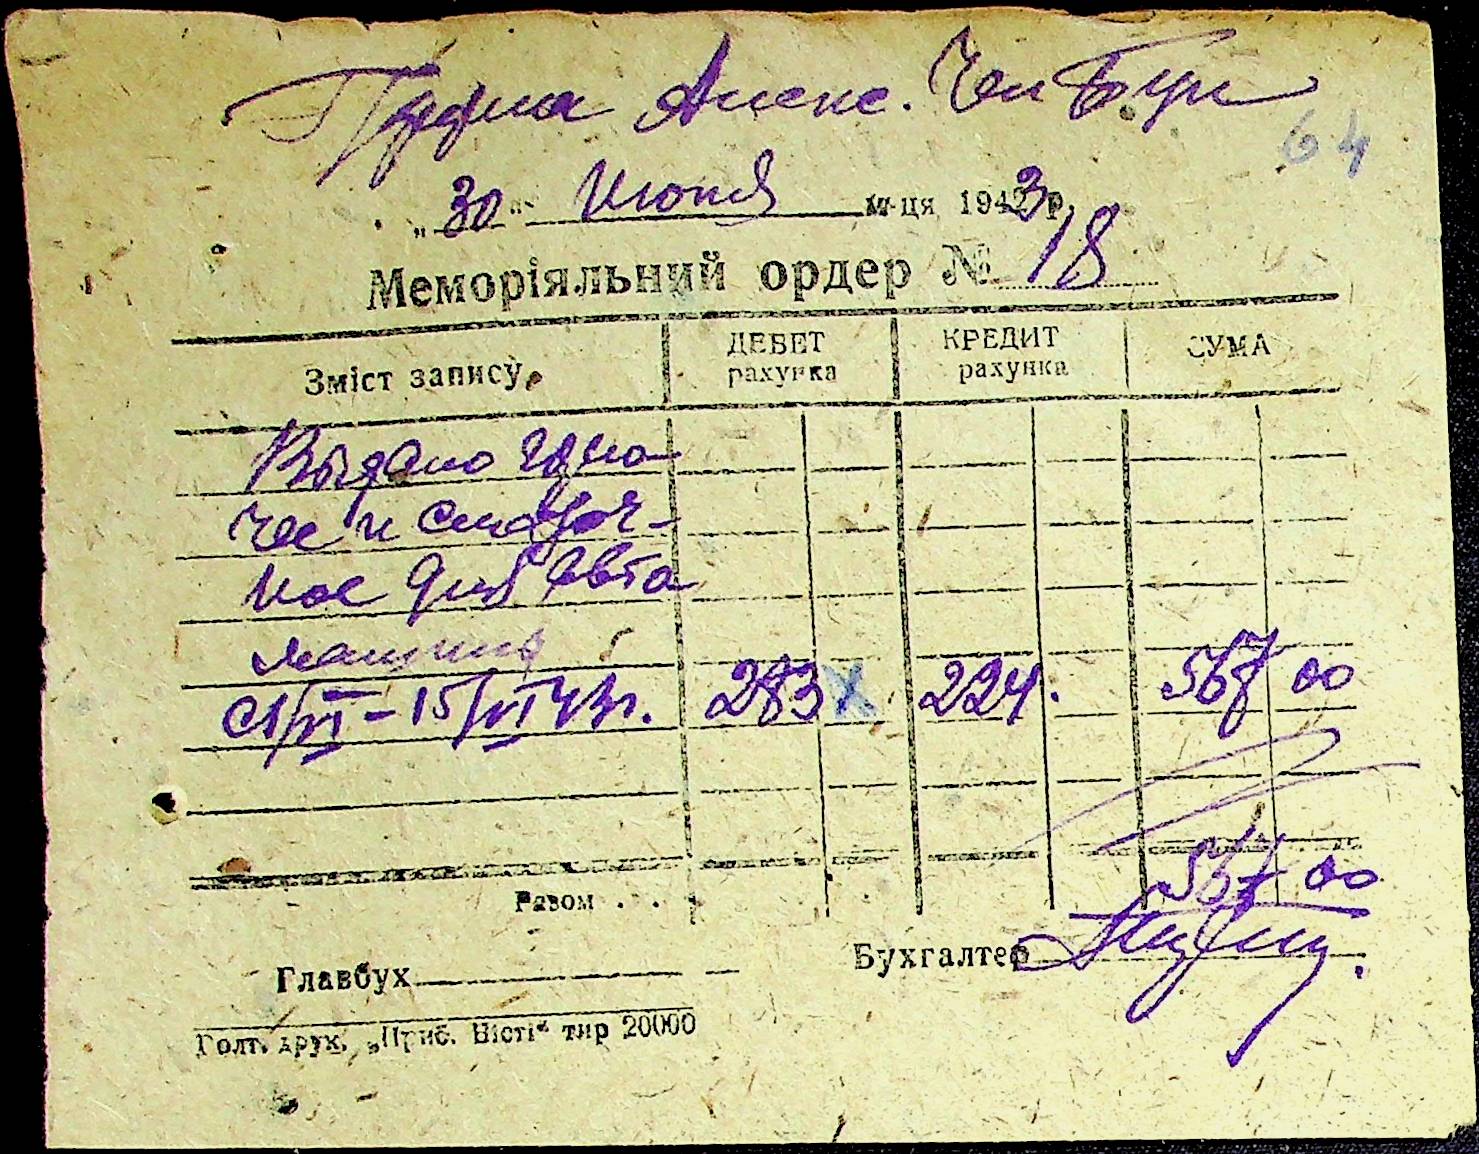 Примэ Алекс. Чел Бун
64
„30“ Июня м-ця 1943 р.
Меморіяльний ордер № 18
Зміст запису ДЕБЕТ рахунка КРЕДИТ рахунка СУМА
Выдано горю-
чее и смазоч-
ное для авто
машины
с 1/VI – 15/VI 43г. 283 224. 567 00
Разом . . . 567 00
Главбух Бухгалтер
Голт. друк. „Приб. Вісті“ тир 20000